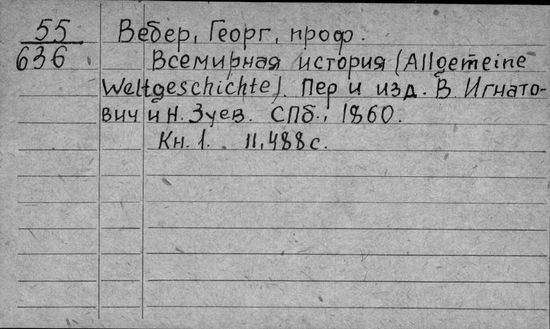 55 Вебер, Георг, проф.
636 Всемирная история (Allgemeine
Weltgeschichte). Пер и изд. В Игнато-
вич и Н. Зуев. СПб., 1860.
Кн. 1. II, 488 с.